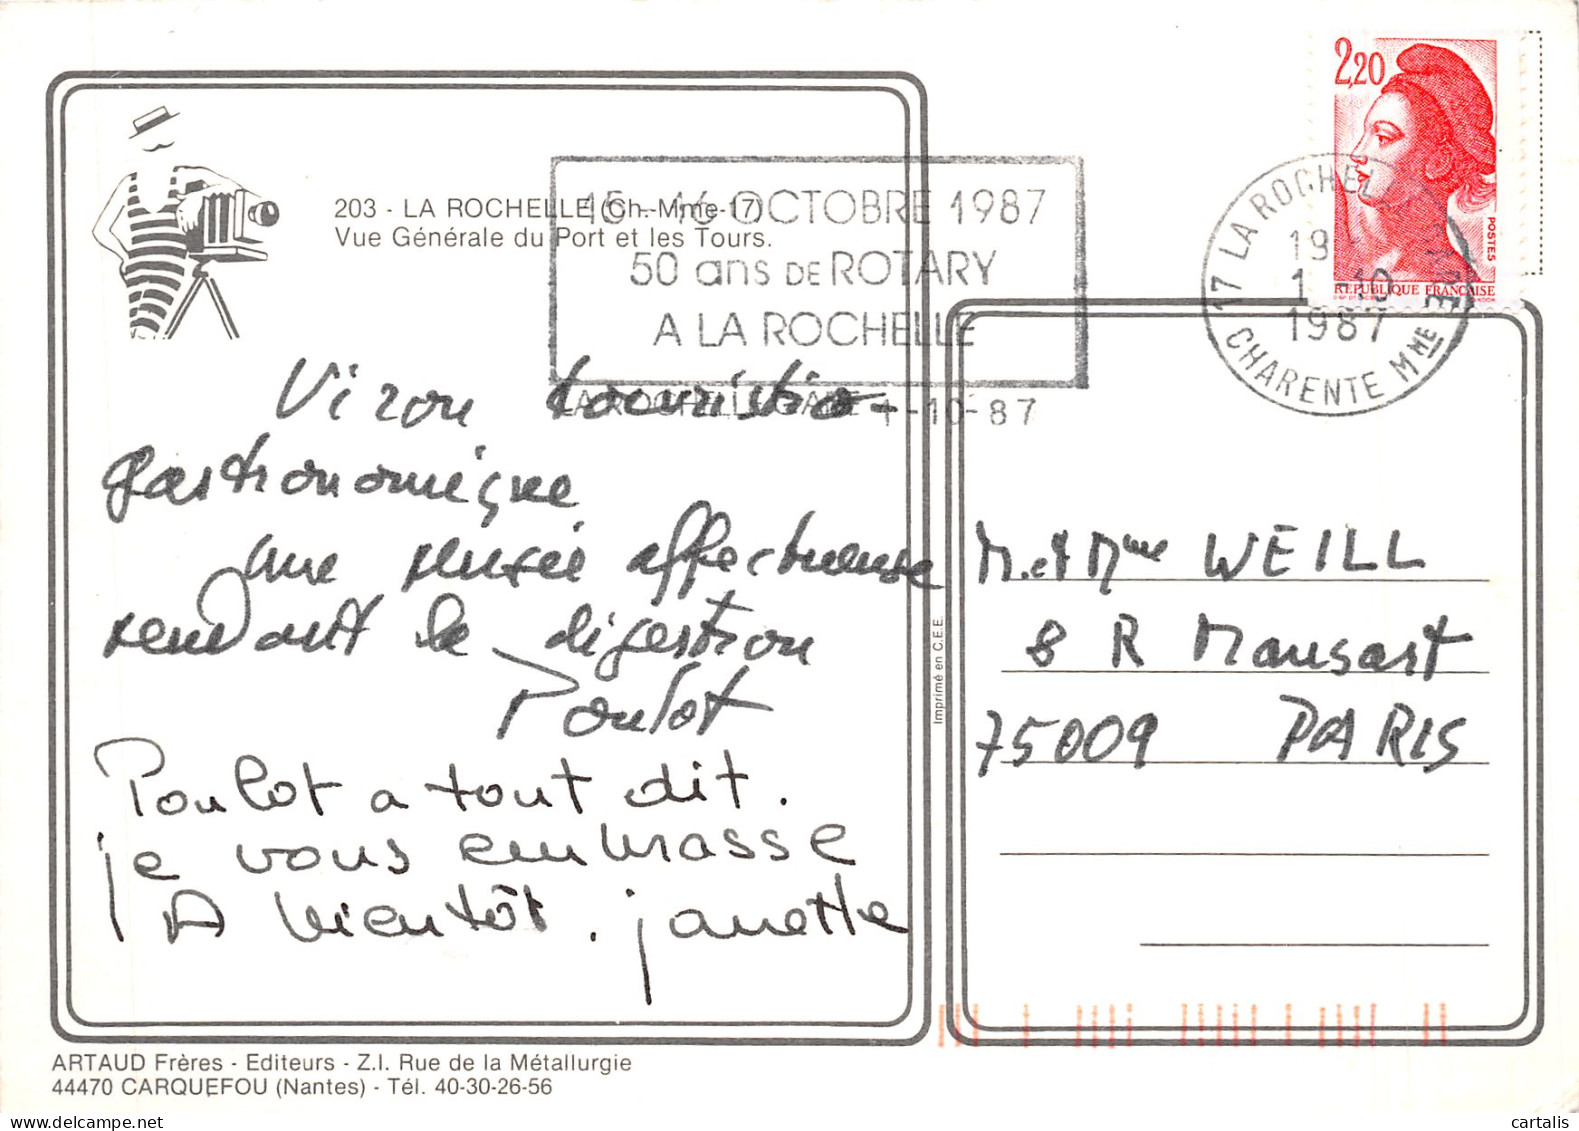 2,20
POSTES
REPUBLIQUE FRANÇAISE
203 - LA ROCHELLE (Ch.-Mme-17)
Vue Générale du Port et les Tours.
15-16 OCTOBRE 1987
50 ans DE ROTARY
A LA ROCHELLE
LA ROCHELLE GARE 1-10-87
17 LA ROCHELLE GARE
19
1-10
1987
CHARENTE MME
Viron touristico
gastronomique
une pensée affectueuse
rendant la digestion
Poulot
Poulot a tout dit.
je vous embrasse
A bientôt. janette
Imprimé en C.E.E.
M. et Mme WEILL
8 R Mansart
75009 PARIS
ARTAUD Frères - Editeurs - Z.I. Rue de la Métallurgie
44470 CARQUEFOU (Nantes) - Tél. 40-30-26-56
cartalis
delcampe.net